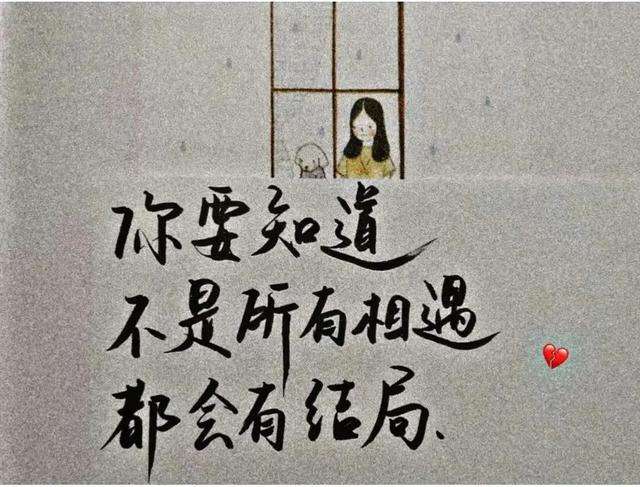 你要知道
不是所有相遇
都会有结局、